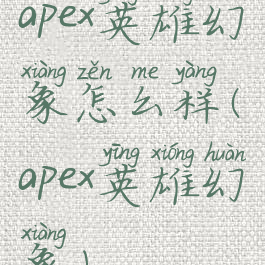 apex英雄幻
xiàng zěn me yàng
象怎么样(
yīng xióng huàn
apex英雄幻
xiàng
象)